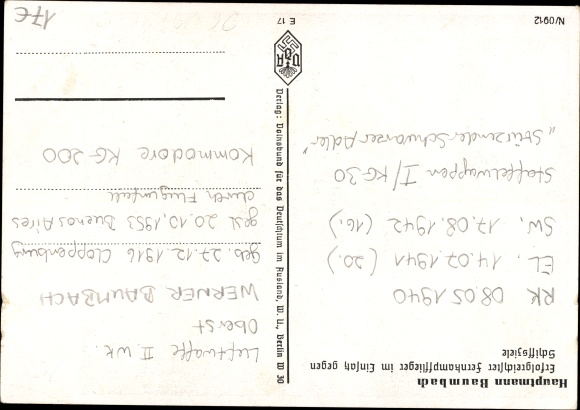 Hauptmann Baumbach
Erfolgreichster Fernkampfflieger im Einsatz gegen
Schiffsziele
RK 08.05.1940
EL. 14.07.1941 (20.)
SW. 17.08.1942 (16.)
Staffelwappen I/KG 30
"Stürzender Schwarzer Adler"
N/0912
Verlag: Volksbund für das Deutschtum im Ausland, W. U., Berlin W 30
VDA
E 17
Luftwaffe II WK.
Oberst
WERNER BAUMBACH
geb. 27.12.1916 Cloppenburg
gest. 20.10.1953 Buenos Aires
durch Flugunfall
Kommodore KG 200
17€